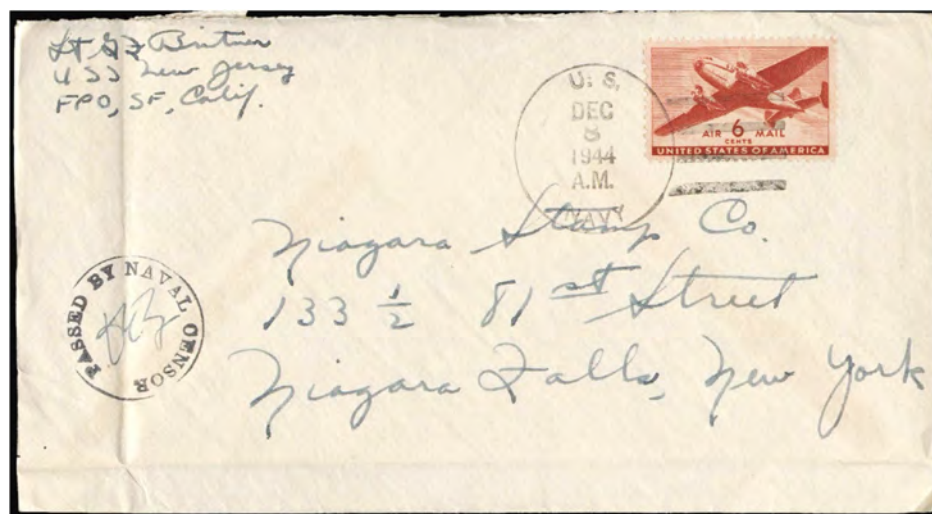 Lt G F Britner
USS New Jersey
FPO, SF, Calif.
U. S.
DEC
8
1944
A.M.
NAVY
AIR 6 MAIL
CENTS
UNITED STATES OF AMERICA
Niagara Stamp Co.
133 1/2 81st Street
Niagara Falls, New York
PASSED BY NAVAL CENSOR